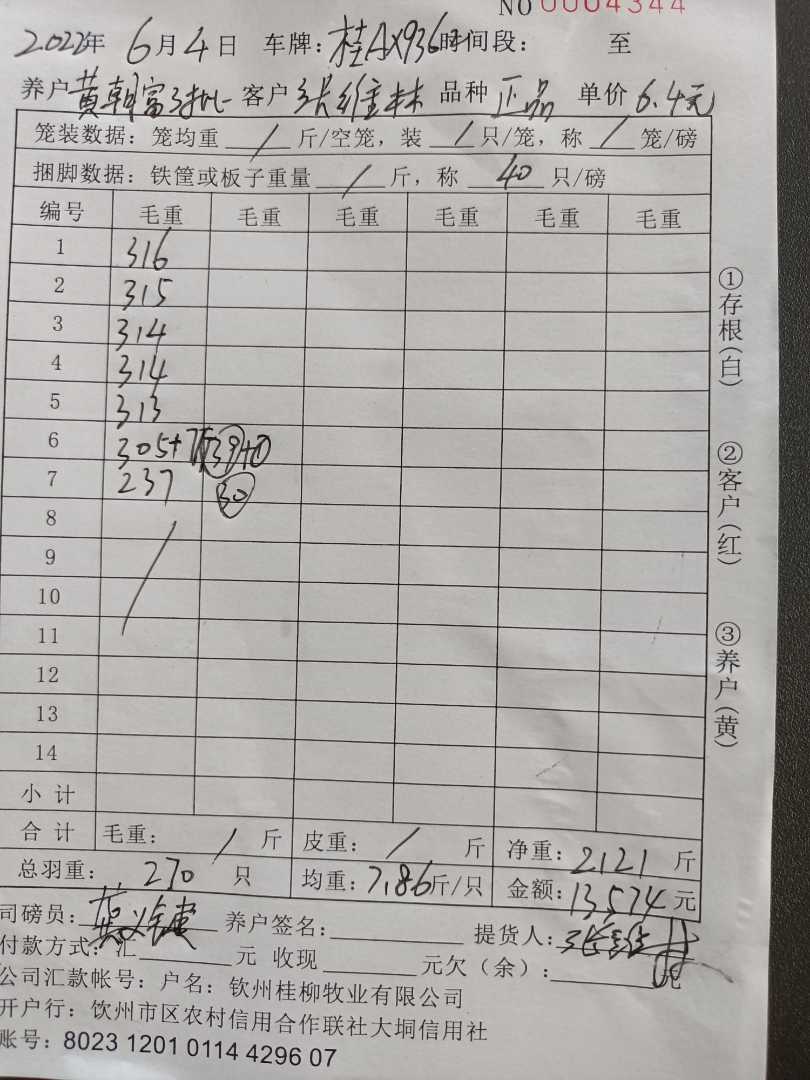 NO 0004344
2022年 6月4日 车牌:桂AX936 时间段: 至
养户 黄朝富3批 客户 张维林 品种 正品 单价 6.4元
笼装数据:笼均重 / 斤/空笼,装 / 只/笼,称 / 笼/磅
捆脚数据:铁筐或板子重量 / 斤,称 40 只/磅
编号 毛重 毛重 毛重 毛重 毛重 毛重
1 316
2 315
3 314
4 314
5 313
6 305+7 39+1
7 237 30
8
9
10
11
12
13
14
小计
合计 毛重: / 斤 皮重: / 斤 净重:2121 斤
总羽重: 270 只 均重:7.86斤/只 金额:13574元
司磅员: 养户签名: 提货人:
付款方式:汇 元 收现 元欠(余): 元
公司汇款帐号:户名:钦州桂柳牧业有限公司
开户行:饮州市区农村信用合作联社大垌信用社
账号:8023 1201 0114 4296 07
①存根(白)
②客户(红)
③养户(黄)